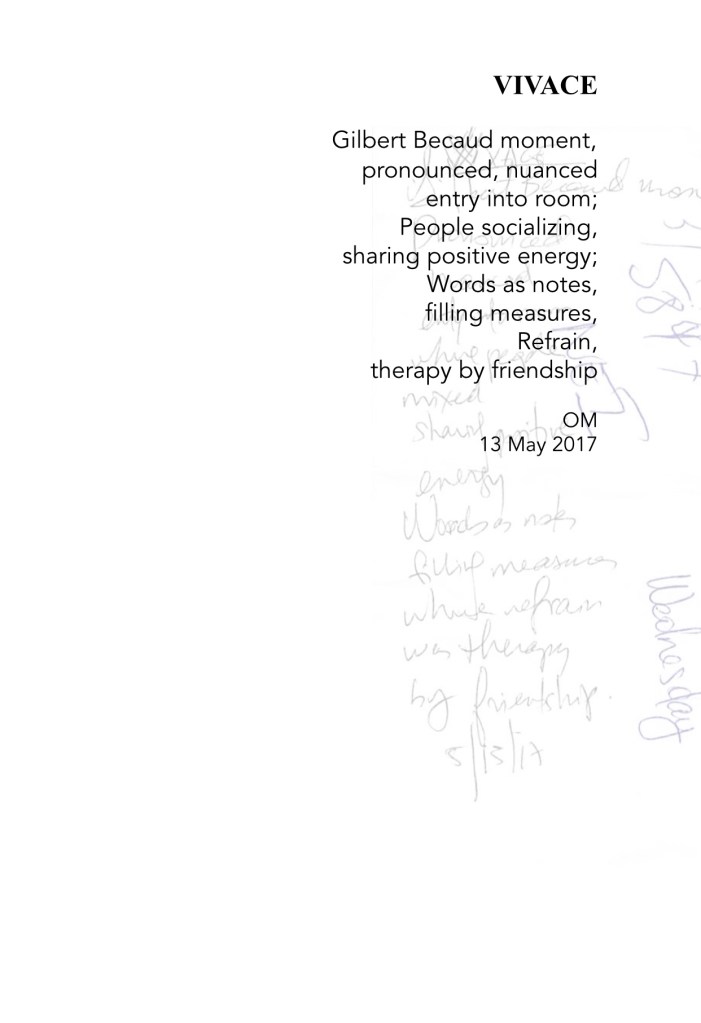 VIVACE
Gilbert Becaud moment,
pronounced, nuanced
entry into room;
People socializing,
sharing positive energy;
Words as notes,
filling measures,
Refrain,
therapy by friendship
OM
13 May 2017
mixed
energy
Words as notes
filling measures
whose refrain
was therapy
by friendship.
5/13/17
Wednesday